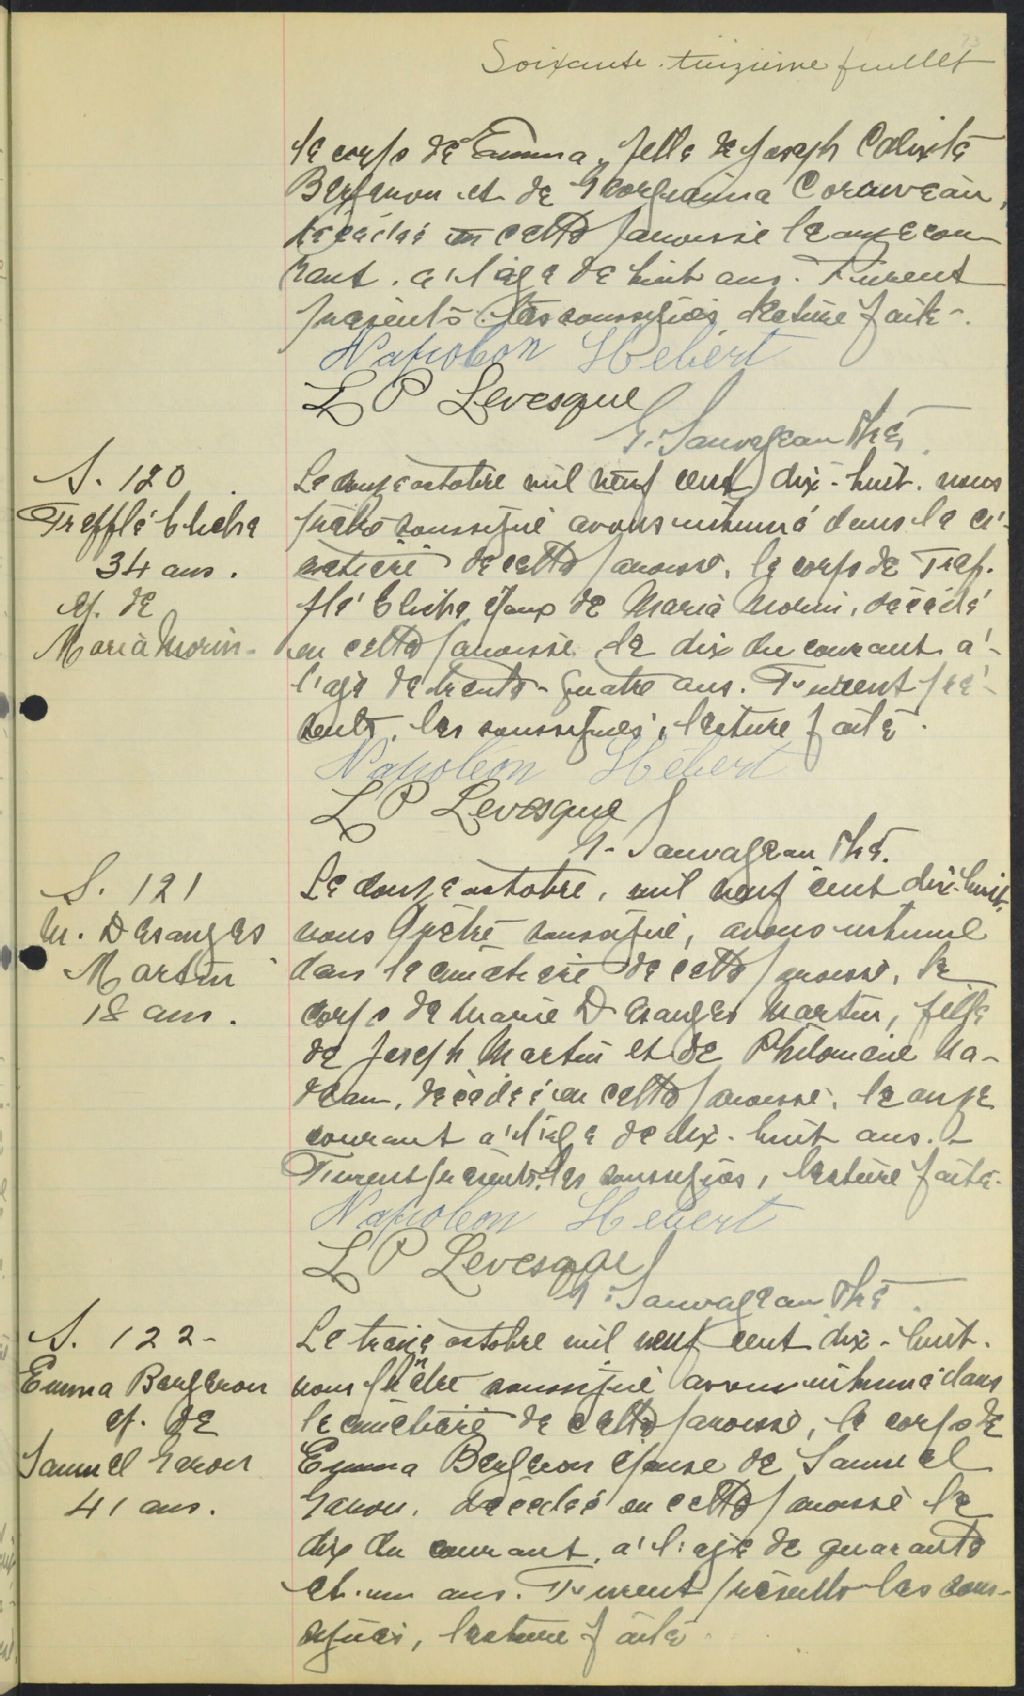 73
Soixante-treizième feuillet
le corps de Emma, fille de Joseph Calixte
Bergeron et de Georgianna Corriveau,
décédée en cette paroisse le onze cou-
rant, à l'âge de huit ans. Furent
présents les soussignés lecture faite.
Napoleon Hebert
L P Levesque
G. Sauvageau Ptre.
S. 120
Trefflé Cliche
34 ans.
ép. de
Maria Morin
Le douze octobre mil neuf cent dix-huit, nous
prêtre soussigné avons inhumé dans le ci-
metière de cette paroisse, le corps de Tref-
flé Cliche époux de Maria Morin, décédé
en cette paroisse le dix du courant à
l'âge de trente-quatre ans. Furent pré-
sents, les soussignés, lecture faite.
Napoleon Hebert
L P Levesque
G. Sauvageau Ptre.
S. 121
M. Desanges
Martin
18 ans.
Le douze octobre, mil neuf cent dix-huit,
nous prêtre soussigné, avons inhumé
dans le cimetière de cette paroisse, le
corps de Marie Desanges Martin, fille
de Joseph Martin et de Philomène Na-
deau, décédée en cette paroisse, le onze
courant à l'âge de dix-huit ans. -
Furent présents, les soussignés, lecture faite.
Napoleon Hebert
L P Levesque
G. Sauvageau Ptre.
S. 122-
Emma Bergeron
ép. de
Samuel
41 ans.
Le treize octobre mil neuf cent dix-huit.
nous prêtre soussigné avons inhumé dans
le cimetière de cette paroisse, le corps de
Emma Bergeron épouse de Samuel
décédée en cette paroisse le
dix du courant, à l'âge de quarante
et-un ans. Furent présents les sous-
signés, lecture faite.